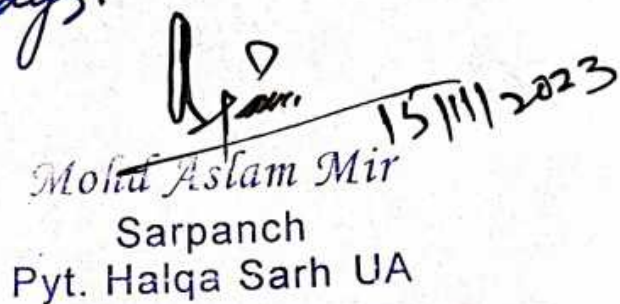 15/11/2023
Mohd Aslam Mir
Sarpanch
Pyt. Halqa Sarh UA